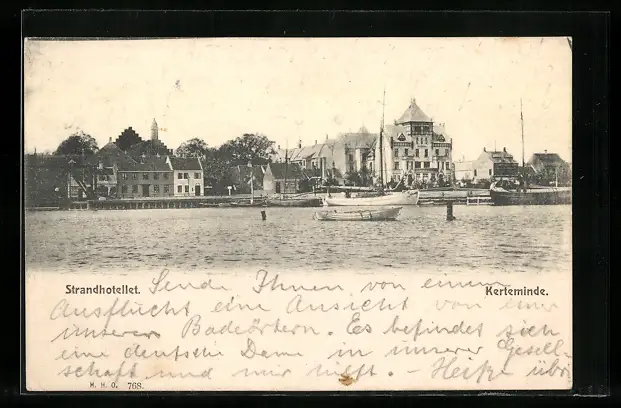 Strandhotellet. Kerteminde.
Sende Ihnen von einem
Ausflucht eine Ansicht von einer
unserer Badeörtern. Es befindet sich
eine deutsche Dame in unserer Gesell-
schaft und mir hilft. — übr
H. H. O. 768.